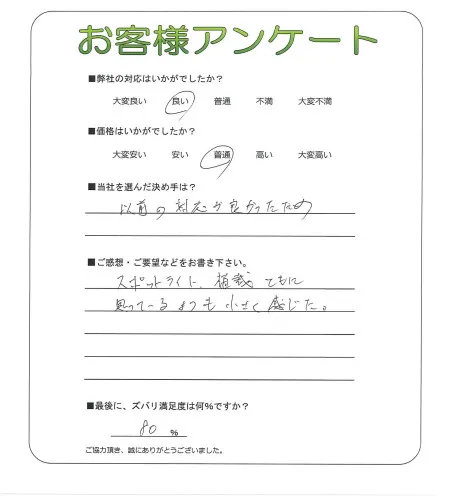 お客様アンケート
■弊社の対応はいかがでしたか？
大変良い 良い 普通 不満 大変不満
■価格はいかがでしたか？
大変安い 安い 普通 高い 大変高い
■当社を選んだ決め手は？
以前の対応が良かったため
■ご感想・ご要望などをお書き下さい。
スポットライト、植栽ともに
思っているよりも小さく感じた。
■最後に、ズバリ満足度は何%ですか？
80 %
ご協力頂き、誠にありがとうございました。